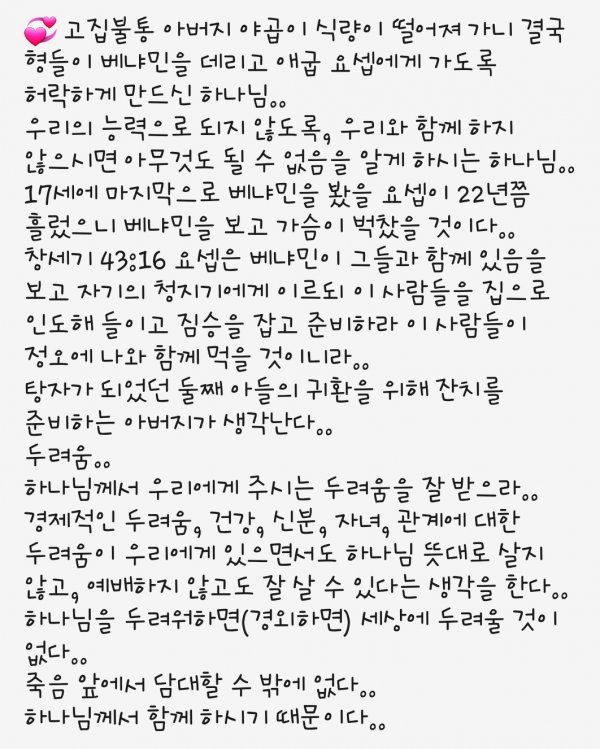 💞 고집불통 아버지 야곱이 식량이 떨어져 가니 결국
형들이 베냐민을 데리고 애굽 요셉에게 가도록
허락하게 만드신 하나님..
우리의 능력으로 되지 않도록, 우리와 함께 하지
않으시면 아무것도 될 수 없음을 알게 하시는 하나님..
17세에 마지막으로 베냐민을 봤을 요셉이 22년쯤
흘렀으니 베냐민을 보고 가슴이 벅찼을 것이다..
창세기 43:16 요셉은 베냐민이 그들과 함께 있음을
보고 자기의 청지기에게 이르되 이 사람들을 집으로
인도해 들이고 짐승을 잡고 준비하라 이 사람들이
정오에 나와 함께 먹을 것이니라..
탕자가 되었던 둘째 아들의 귀환을 위해 잔치를
준비하는 아버지가 생각난다..
두려움..
하나님께서 우리에게 주시는 두려움을 잘 받으라..
경제적인 두려움, 건강, 신분, 자녀, 관계에 대한
두려움이 우리에게 있으면서도 하나님 뜻대로 살지
않고, 예배하지 않고도 잘 살 수 있다는 생각을 한다..
하나님을 두려워하면(경외하면) 세상에 두려울 것이
없다..
죽음 앞에서 담대할 수 밖에 없다..
하나님께서 함께 하시기 때문이다..